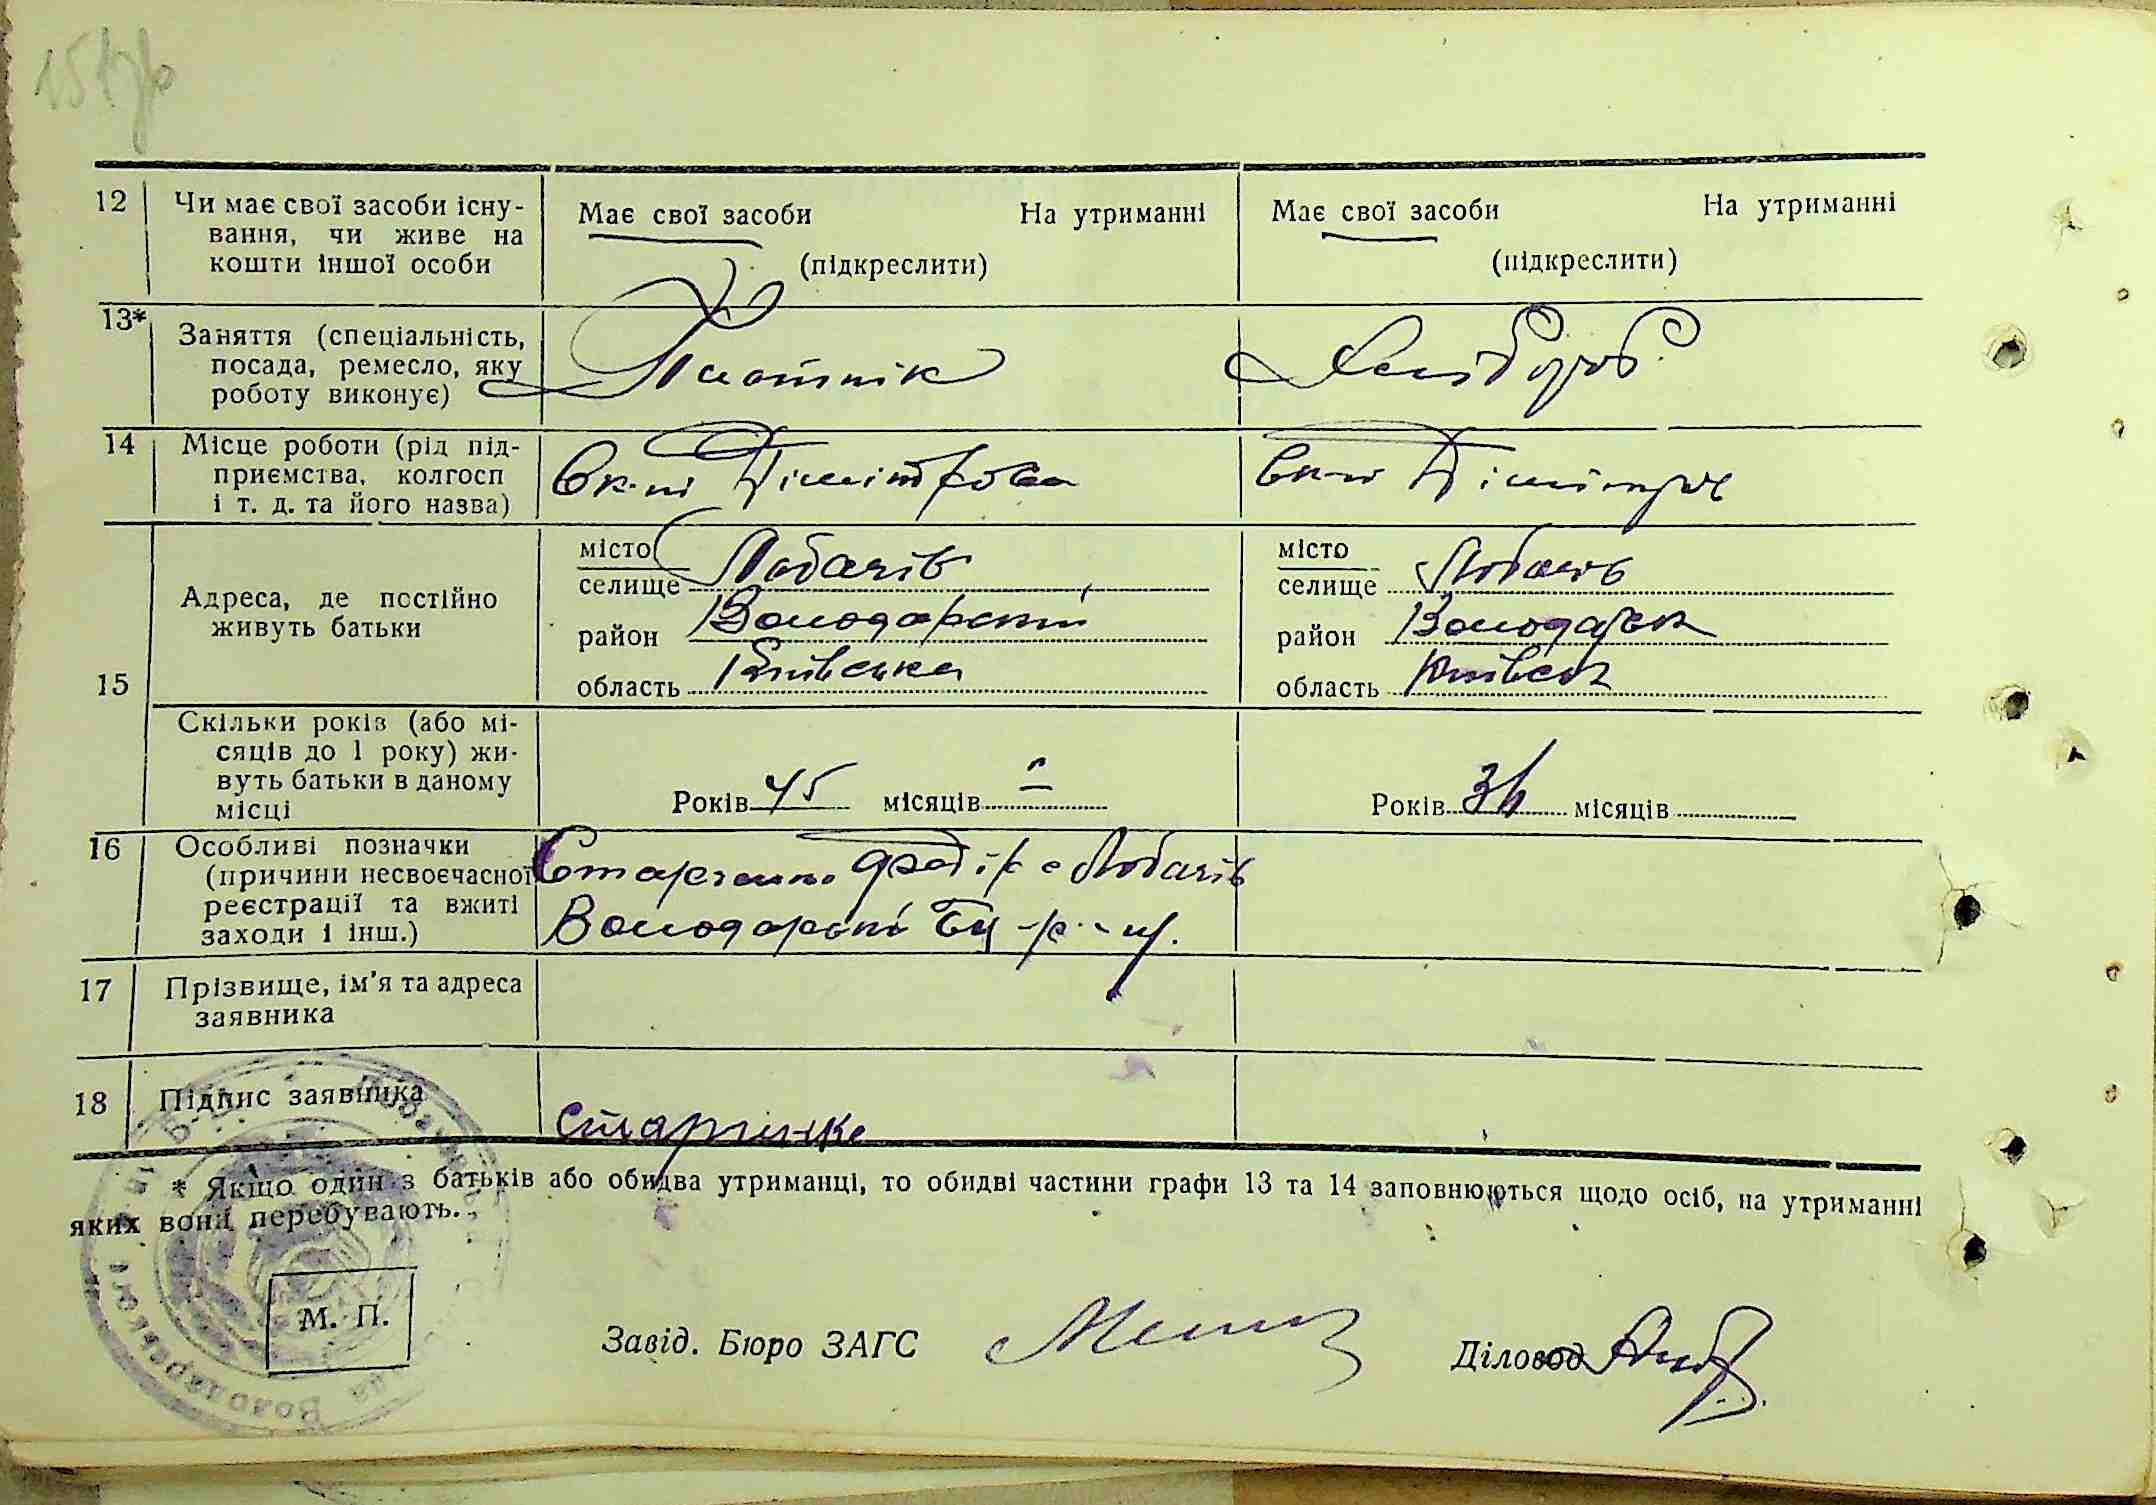 12 Чи має свої засоби існу-
вання, чи живе на
кошти іншої особи
Має свої засоби На утриманні
(підкреслити)
Має свої засоби На утриманні
(підкреслити)
13* Заняття (спеціальність,
посада, ремесло, яку
роботу виконує)
Плотнік
Хлібороб
14 Місце роботи (рід під-
приємства, колгосп
і т. д. та його назва)
Дімітрова
Дімітров
15 Адреса, де постійно
живуть батьки
місто
селище Лобачів
район Володарський
область Київська
місто
селище Лобачів
район Володарськ
область Київськ
Скільки років (або мі-
сяців до 1 року) жи-
вуть батьки в даному
місці
Років 45 місяців –
Років 36 місяців
16 Особливі позначки
(причини несвоєчасної
реєстрації та вжиті
заходи і інш.)
Лобачів
17 Прізвище, ім'я та адреса
заявника
18 Підпис заявника
Старченко
* Якщо один з батьків або обидва утриманці, то обидві частини графи 13 та 14 заповнюються щодо осіб, на утриманні
яких вони перебувають.
М. П.
Завід. Бюро ЗАГС
Діловод